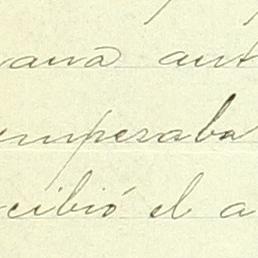 ana ant
emperaba
cibió el a